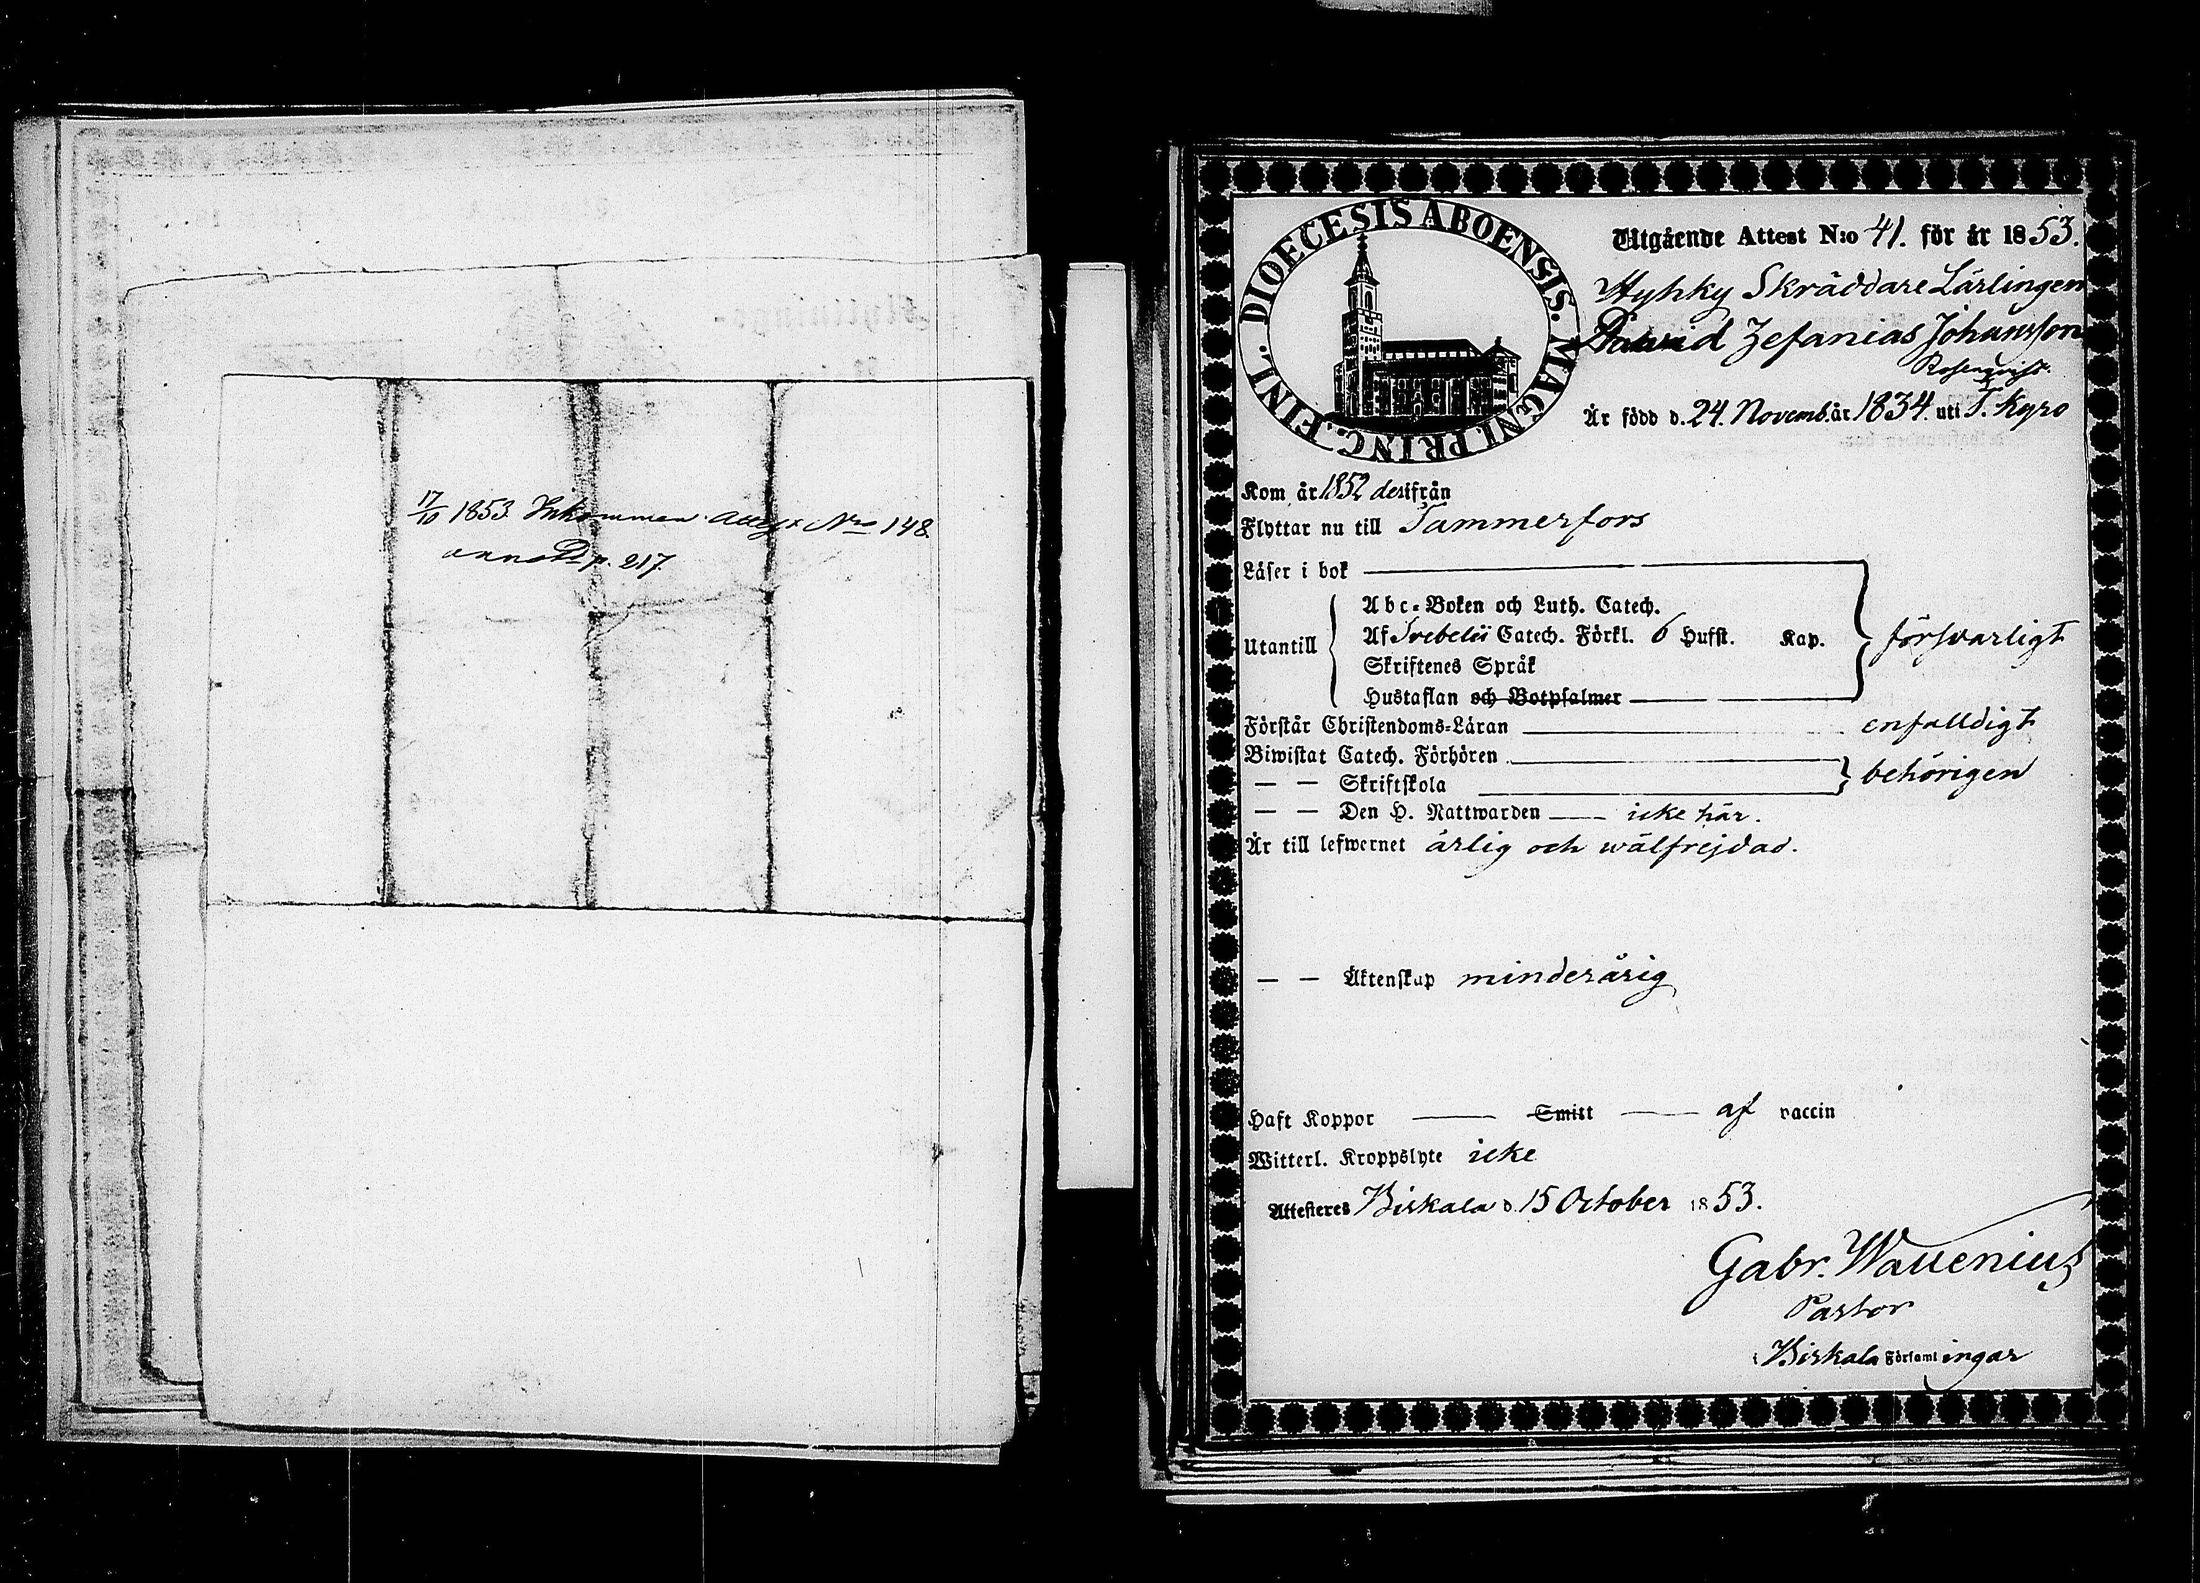 17/10 1853. Inkommen Attest Nro 148.
annot. p. 217.
DIOECESIS ABOENSIS. MAGNI. PRINC. FINL.
Utgående Attest N:o 41. för år 1853.
Hyhky Skräddare Lärlingen
David Zefanias Johansson
Rosenqvist.
Är född d. 24. Novemb. år 1834. uti T. Kyro
Kom år 1852 derifrån
Flyttar nu till Tammerfors
Läser i bok
Abc-Boken och Luth. Catech.
Utantill Af Svebelii Catech. Förkl. 6 Hufst. Kap. försvarligt
Skriftenes Språk
Hustaflan och Botpsalmer
Förstår Christendoms-Läran enfalldigt
Biwistat Catech. Förhören
— — Skriftskola behörigen
— — Den H. Nattwarden icke här.
Är till lefwernet ärlig och wälfrejdad.
— — Äktenskap minderårig
Haft Koppor Smitt af vaccin
Witterl. Kroppslyte icke
Attesteres Birkala d. 15 October 1853.
Gabr. Wallenius
Pastor
i Birkala Församlingar